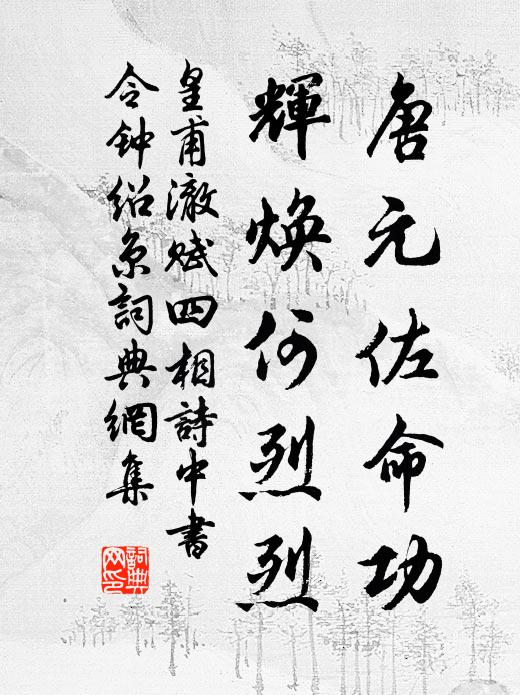 唐元佐命功
輝煥何烈烈
皇甫澈赋四相詩中書
令钟绍京詞典網集
詞典网印